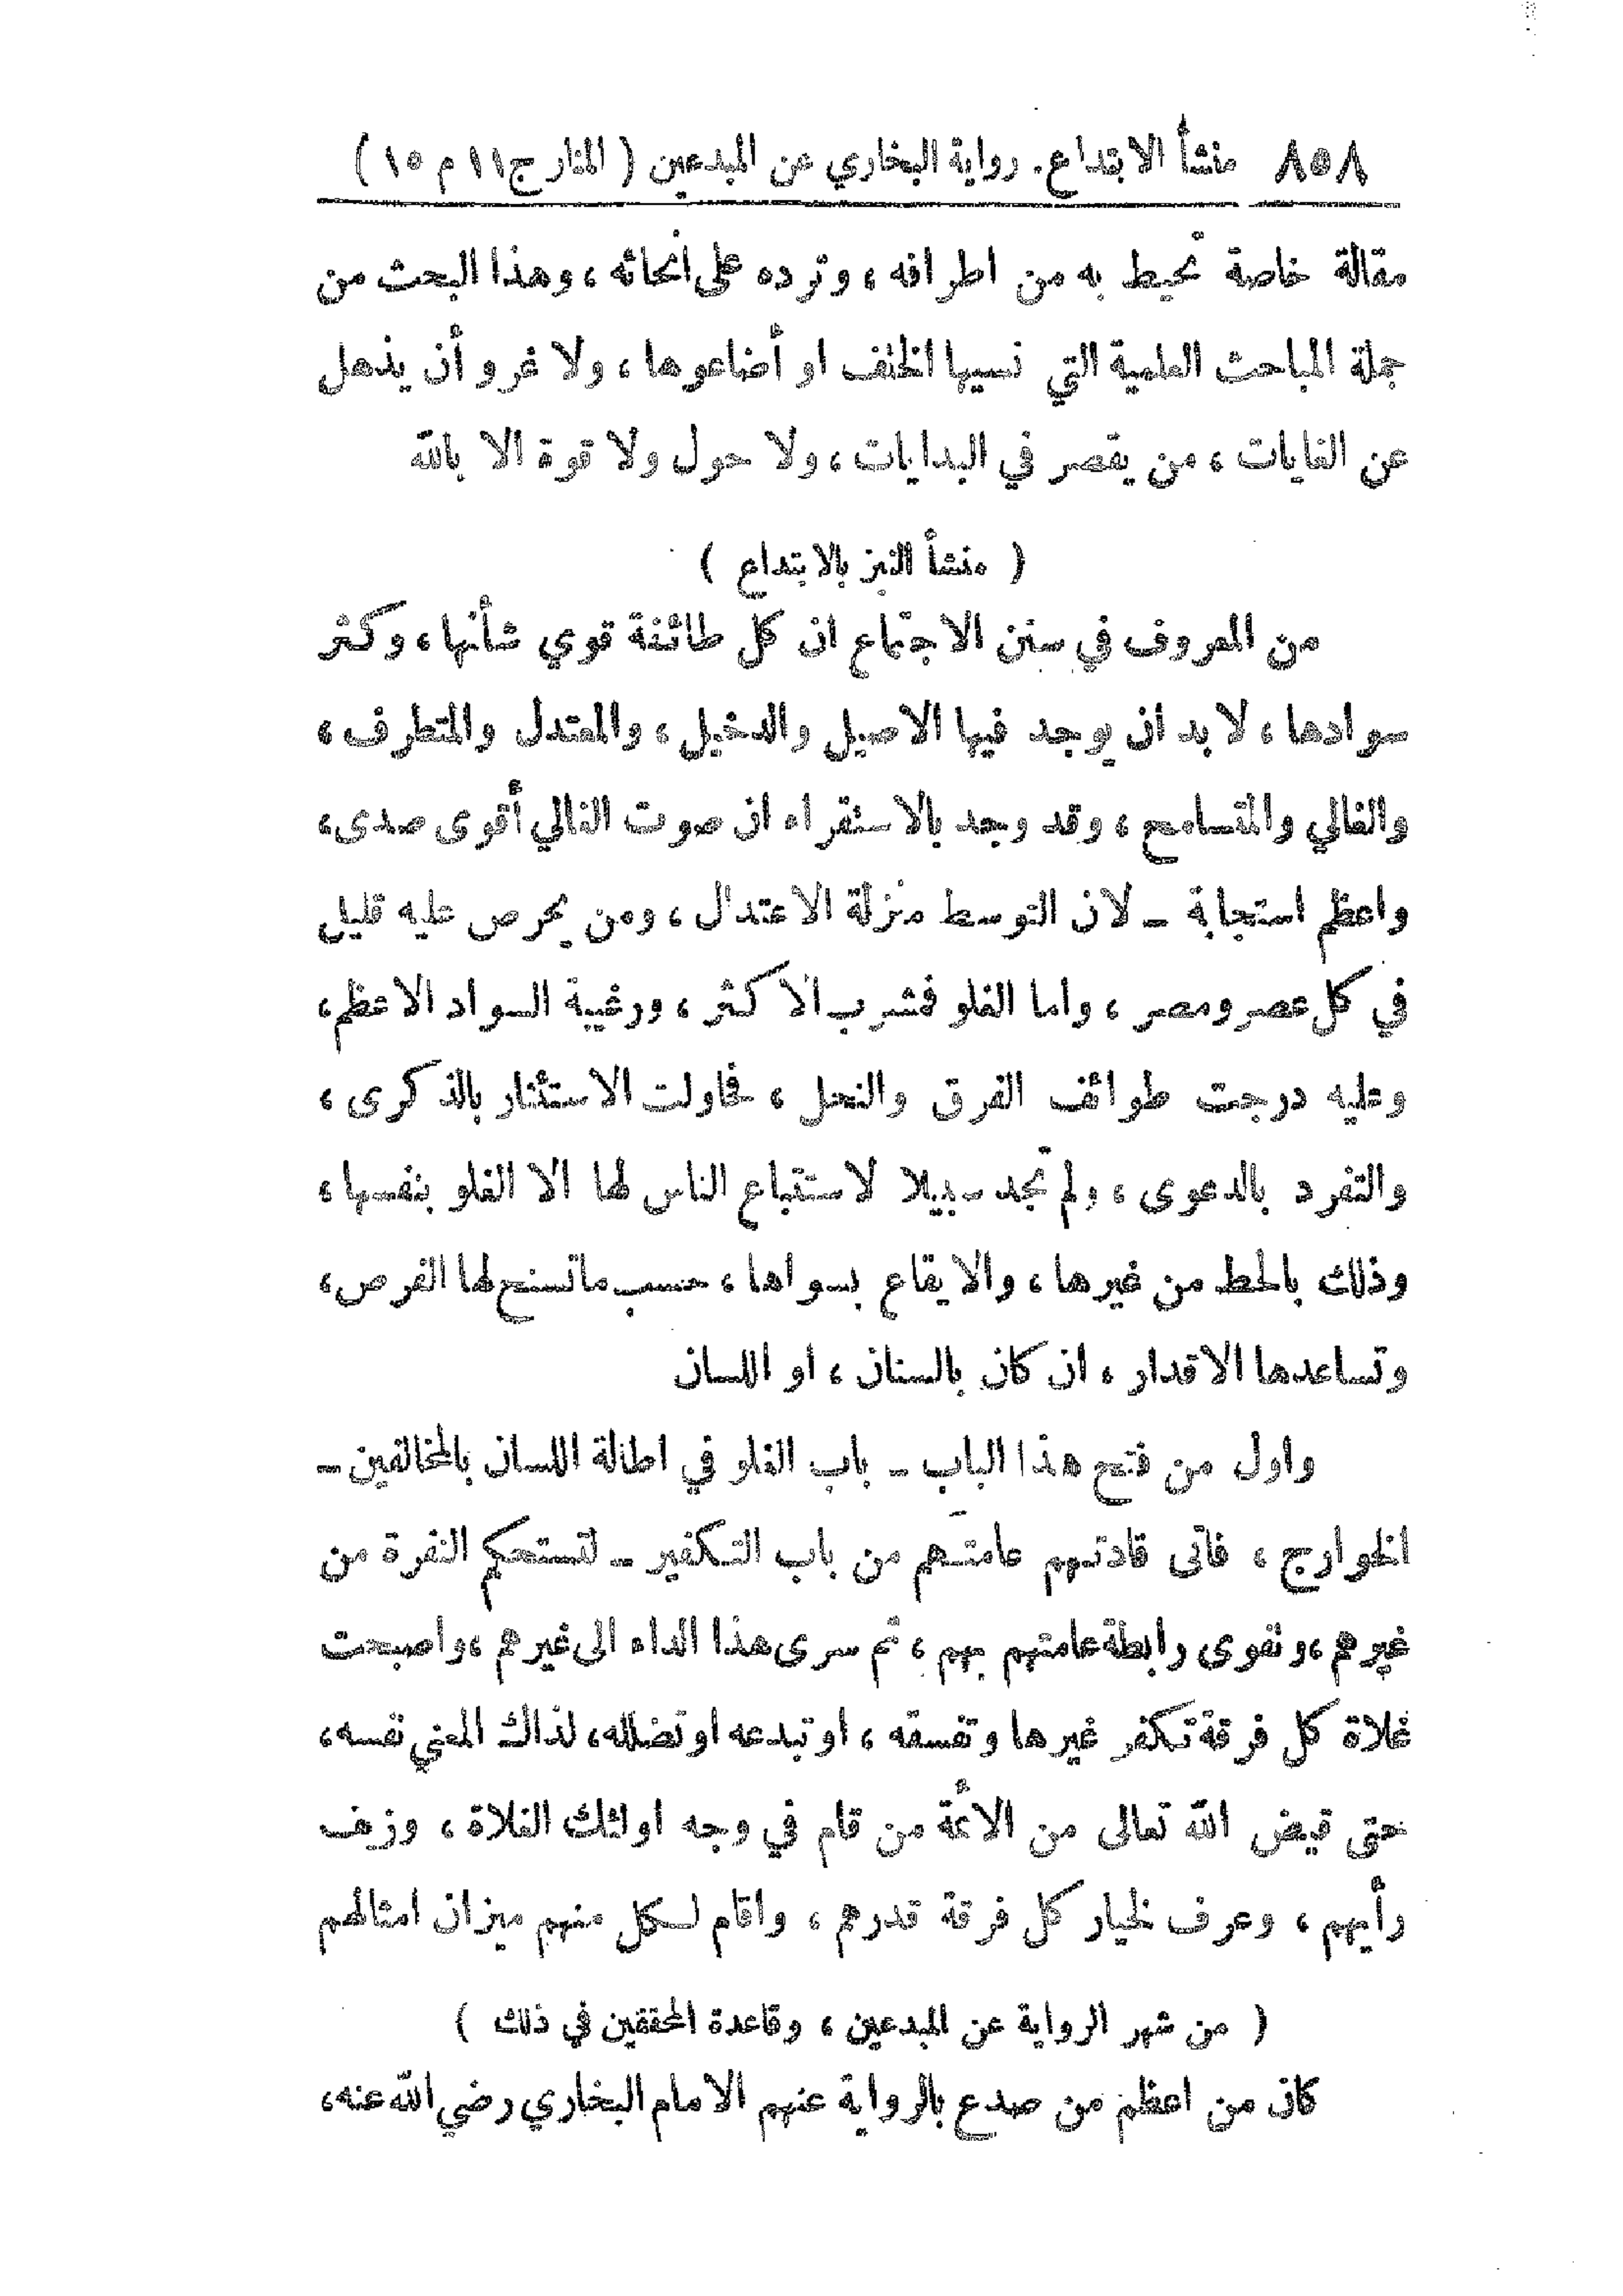 ٨٥٨ منشأ الابتداع. رواية البخاري عن المبدعين ( المنار ج١١ م ١٥ )
مقالة خاصة تحيط به من اطرافه ، وترده على أنحائه ، وهذا البحث من
جملة المباحث العلمية التي نسيها الخلف او أضاعوها ، ولا غرو أن يذهل
عن الغايات ، من يقصر في البدايات ، ولا حول ولا قوة الا بالله
( منشأ النبز بالابتداع )
من المعروف في سنن الاجتماع ان كل طائفة قوي شأنها ، وكثر
سوادها ، لا بد ان يوجد فيها الاصيل والدخيل ، والمعتدل والمتطرف ،
والغالي والمتسامح ، وقد وجد بالاستقراء ان صوت الغالي أقوى صدى ،
واعظم استجابة ــ لان التوسط منزلة الاعتدال ، ومن يحرص عليه قليل
في كل عصر ومصر ، واما الغلو فمشرب الاكثر ، ورغيبة السواد الاعظم ،
وعليه درجت طوائف الفرق والنحل ، فحاولت الاستئثار بالذكرى ،
والتفرد بالدعوى ، ولم تجد سبيلا لاستتباع الناس لها الا الغلو بنفسها ،
وذلك بالحط من غيرها ، والايقاع بسواها ، حسب ما تسنح لها الفرص ،
وتساعدها الاقدار ، ان كان بالسنان ، او اللسان
واول من فتح هذا الباب ــ باب الغلو في اطالة اللسان بالمخالفين ــ
الخوارج ، فأتى قادتهم عامتهم من باب التكفير ــ لتستحكم النفرة من
غيرهم ، وتقوى رابطة عامتهم بهم ، ثم سرى هذا الداء الى غيرهم ، واصبحت
غلاة كل فرقة تكفر غيرها وتفسقه ، او تبدعه او تضلله ، لذاك المعنى نفسه ،
حتى قيض الله تعالى من الأئمة من قام في وجه اولئك الغلاة ، وزيف
رأيهم ، وعرف لخيار كل فرقة قدرهم ، واقام لكل منهم ميزان امثالهم
( من شهر الرواية عن المبدعين ، وقاعدة المحققين في ذلك )
كان من اعظم من صدع بالرواية عنهم الامام البخاري رضي الله عنه ،